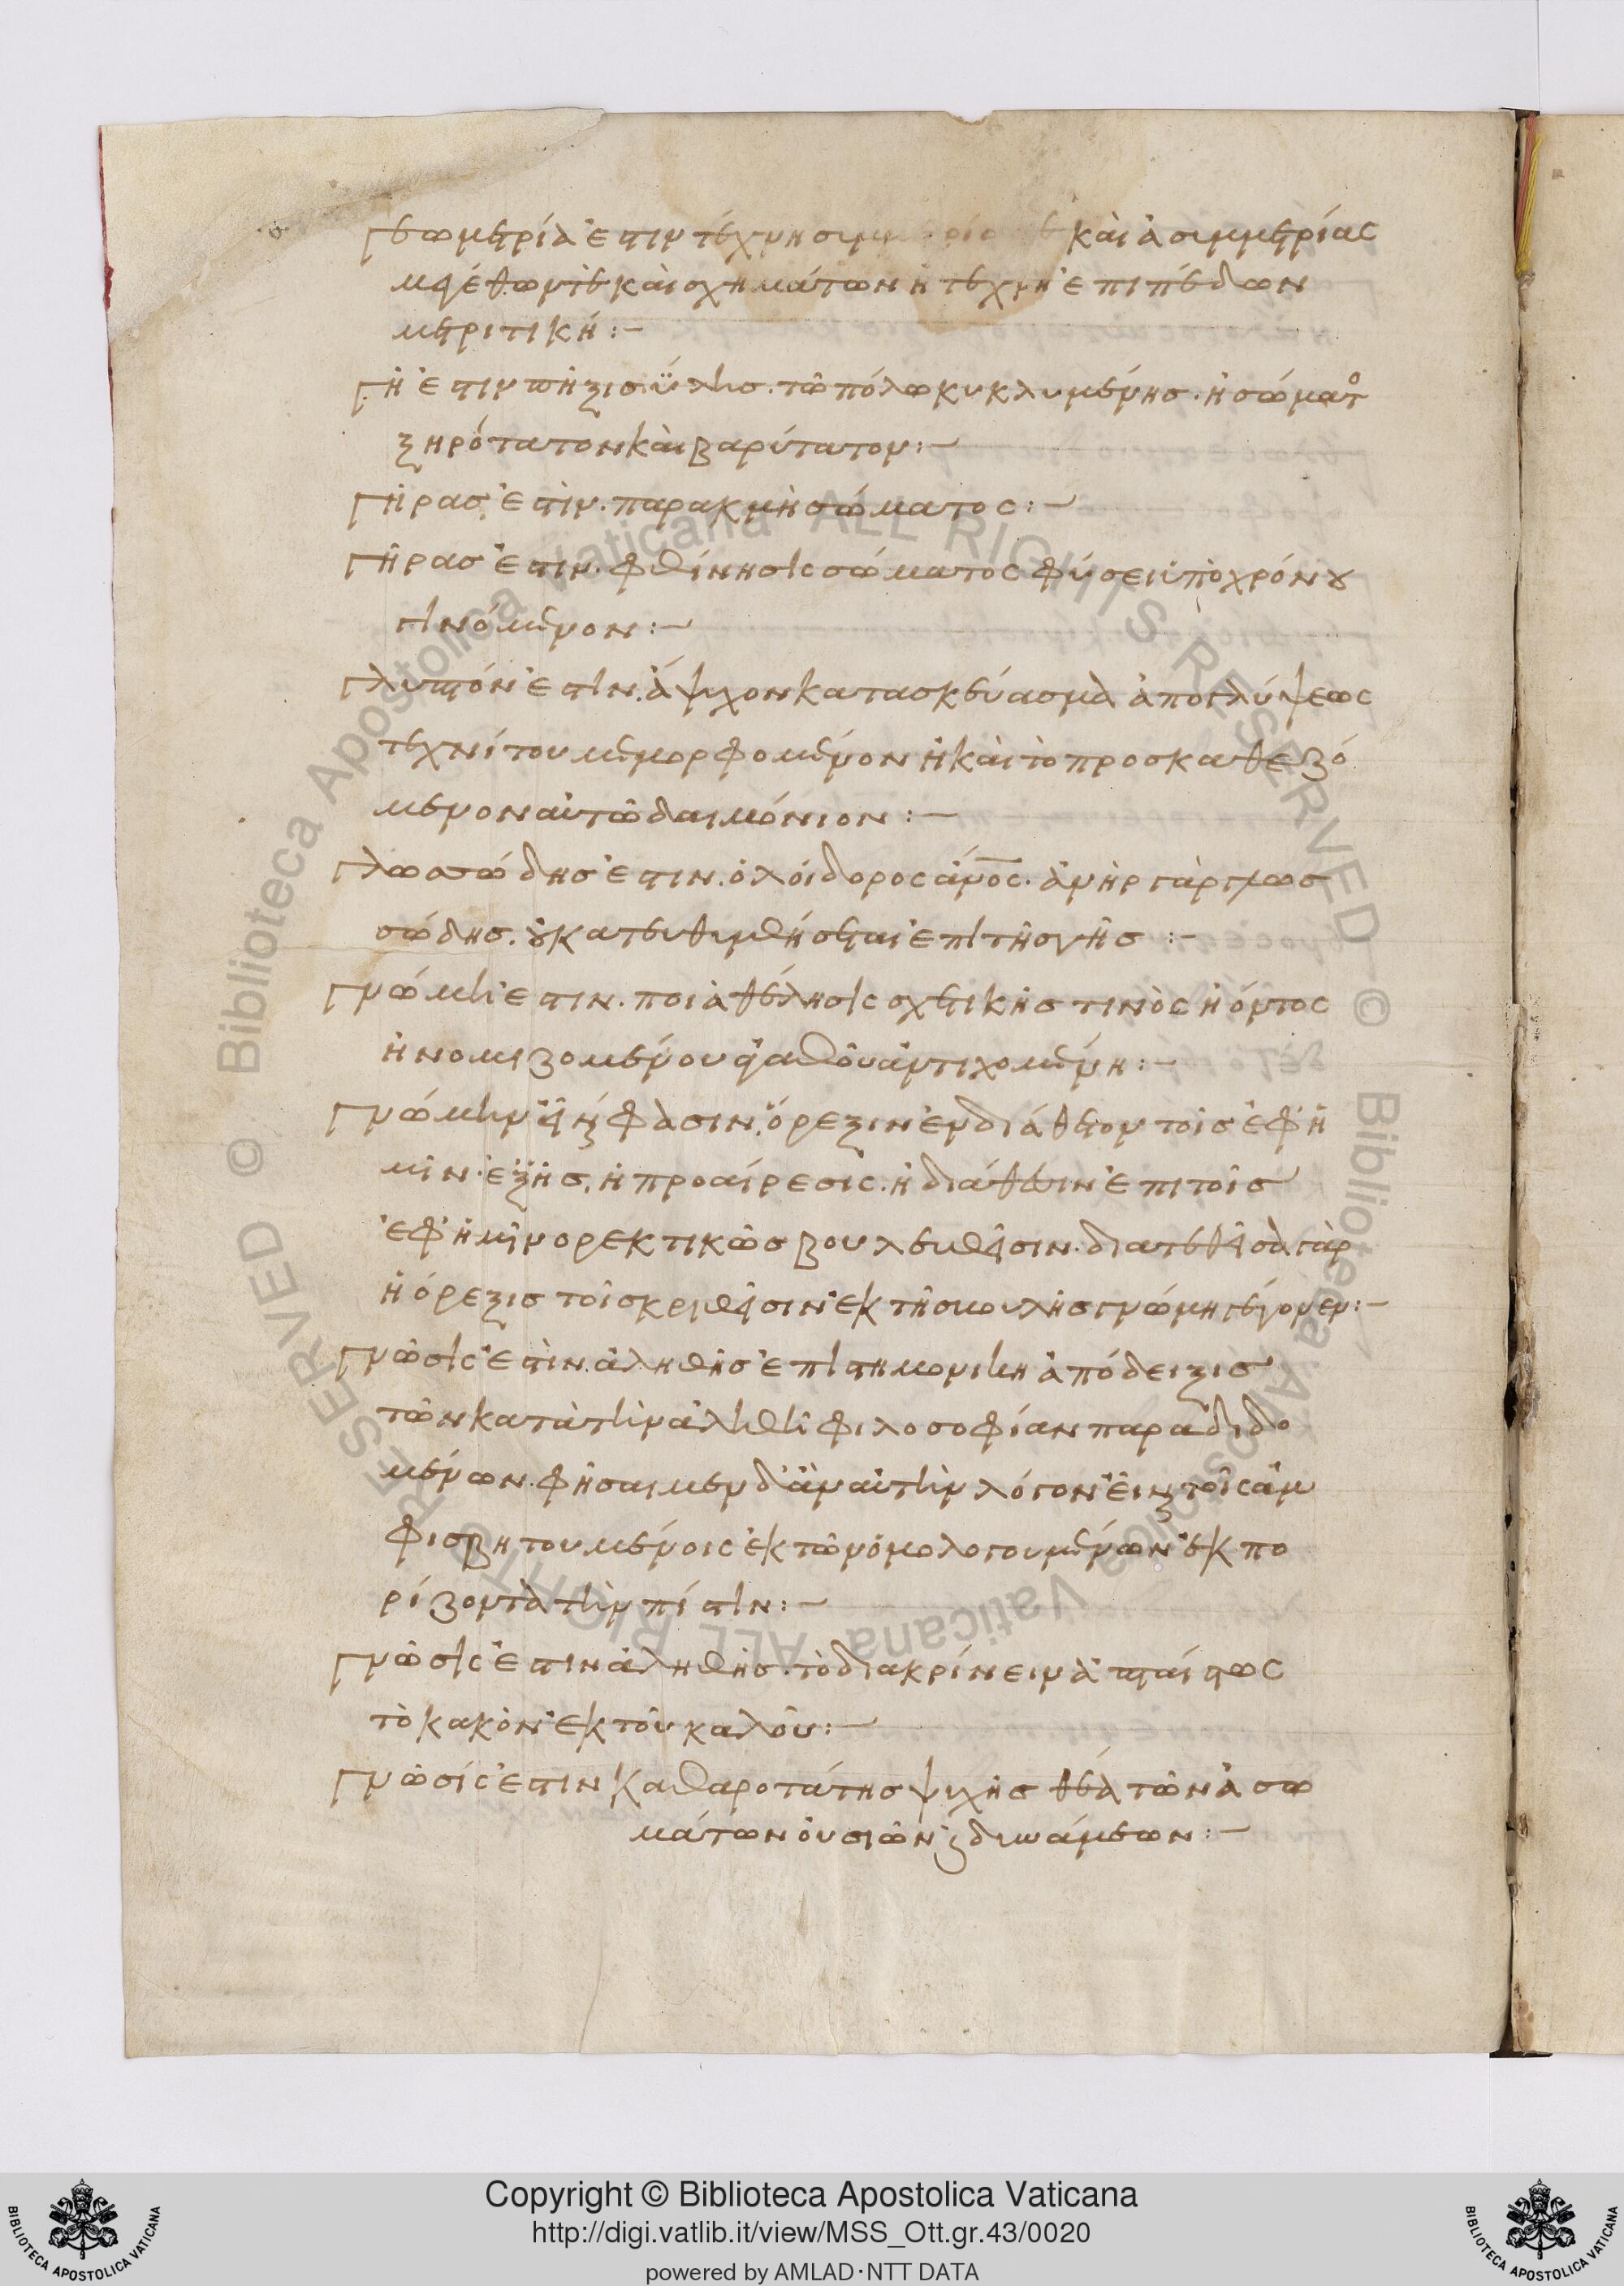 γεωμετρία ἐστιν τέχνη καὶ ἀσυμμετρίας
μεγέθων τὲ καὶ σχημάτων ἢ τέχνη ἐπιπέδων
μετριτικὴ :-
γῆ ἐστιν πῆξις ὕλης. τῶ πόλω κυκλυμένης. ἢ σώματ̊
ξηρότατον καὶ βαρύτατον :-
γῆρας ἐστὶν. παρακμὴ σώματος :-
γῆρας ἐστιν. φθίνησις σώματος φύσει ὑπὸ χρόνου
γινόμενον :-
γλυπτόν ἐστιν. ἄψυχον κατασκεύασμα ἀπογλύψεως
τεχνίτου μεμορφομένον ἢ καὶ τὸ προσκαθεζό
μενον αὐτῶ δαιμόνιον :-
γλωσσώδης ἐστιν. ὁ λοίδορος ἄνος. ἀνὴρ γὰρ γλωσ
σώδης. οὐ κατευθυνθήσεται ἐπὶ τῆς γῆς :-
γνώμη ἐστιν. ποιὰ θέλησις σχετικῆς τινὸς ἢ όντος
ἢ νομιζομένου ἀγαθοῦ ἀντιχομένη :-
γνώμην εἶναι φασὶν. ὄρεξιν ἐνδιάθετον τοῖς ἐφ ἡ
μῖν. ἐξ ἧς, ἡ προαίρεσις. ἢ διάθεσιν ἐπι τοῖς
ἐφ ἡμῖν ορεκτικῶς βουλευθεῖσιν. διατεθεῖσα γὰρ
ἡ όρεξις τοῖς κριθεῖσιν ἐκ τῆς βουλῆς γνώμη γέγονεν :-
γνῶσις ἐστὶν. ἀληθὴς ἐπιστημονικη ἀπόδειξις
τῶν κατὰ τὴν ἀληθῆ φιλοσοφίαν παραδιδο
μένων. φήσαιμεν δ' ἂν αὐτὴν λόγον εἶναι τοῖς ἀμ
φισβητουμένοις ἐκ τῶν ὁμολογουμένων ἐκπο
ρίζοντα τὴν πίστιν :-
γνῶσις ἐστιν ἀληθὴς. τὸ διακρίνειν ἀπταίστως
τὸ κακὸν ἐκ τοῦ καλοῦ :-
γνῶσίς ἐστιν καθαροτάτης ψυχῆς θέα τῶν ἀσω
μάτων οὐσιῶν καὶ δυνάμεων :-
Copyright © Biblioteca Apostolica Vaticana
http://digi.vatlib.it/view/MSS_Ott.gr.43/0020
powered by AMLAD·NTT DATA